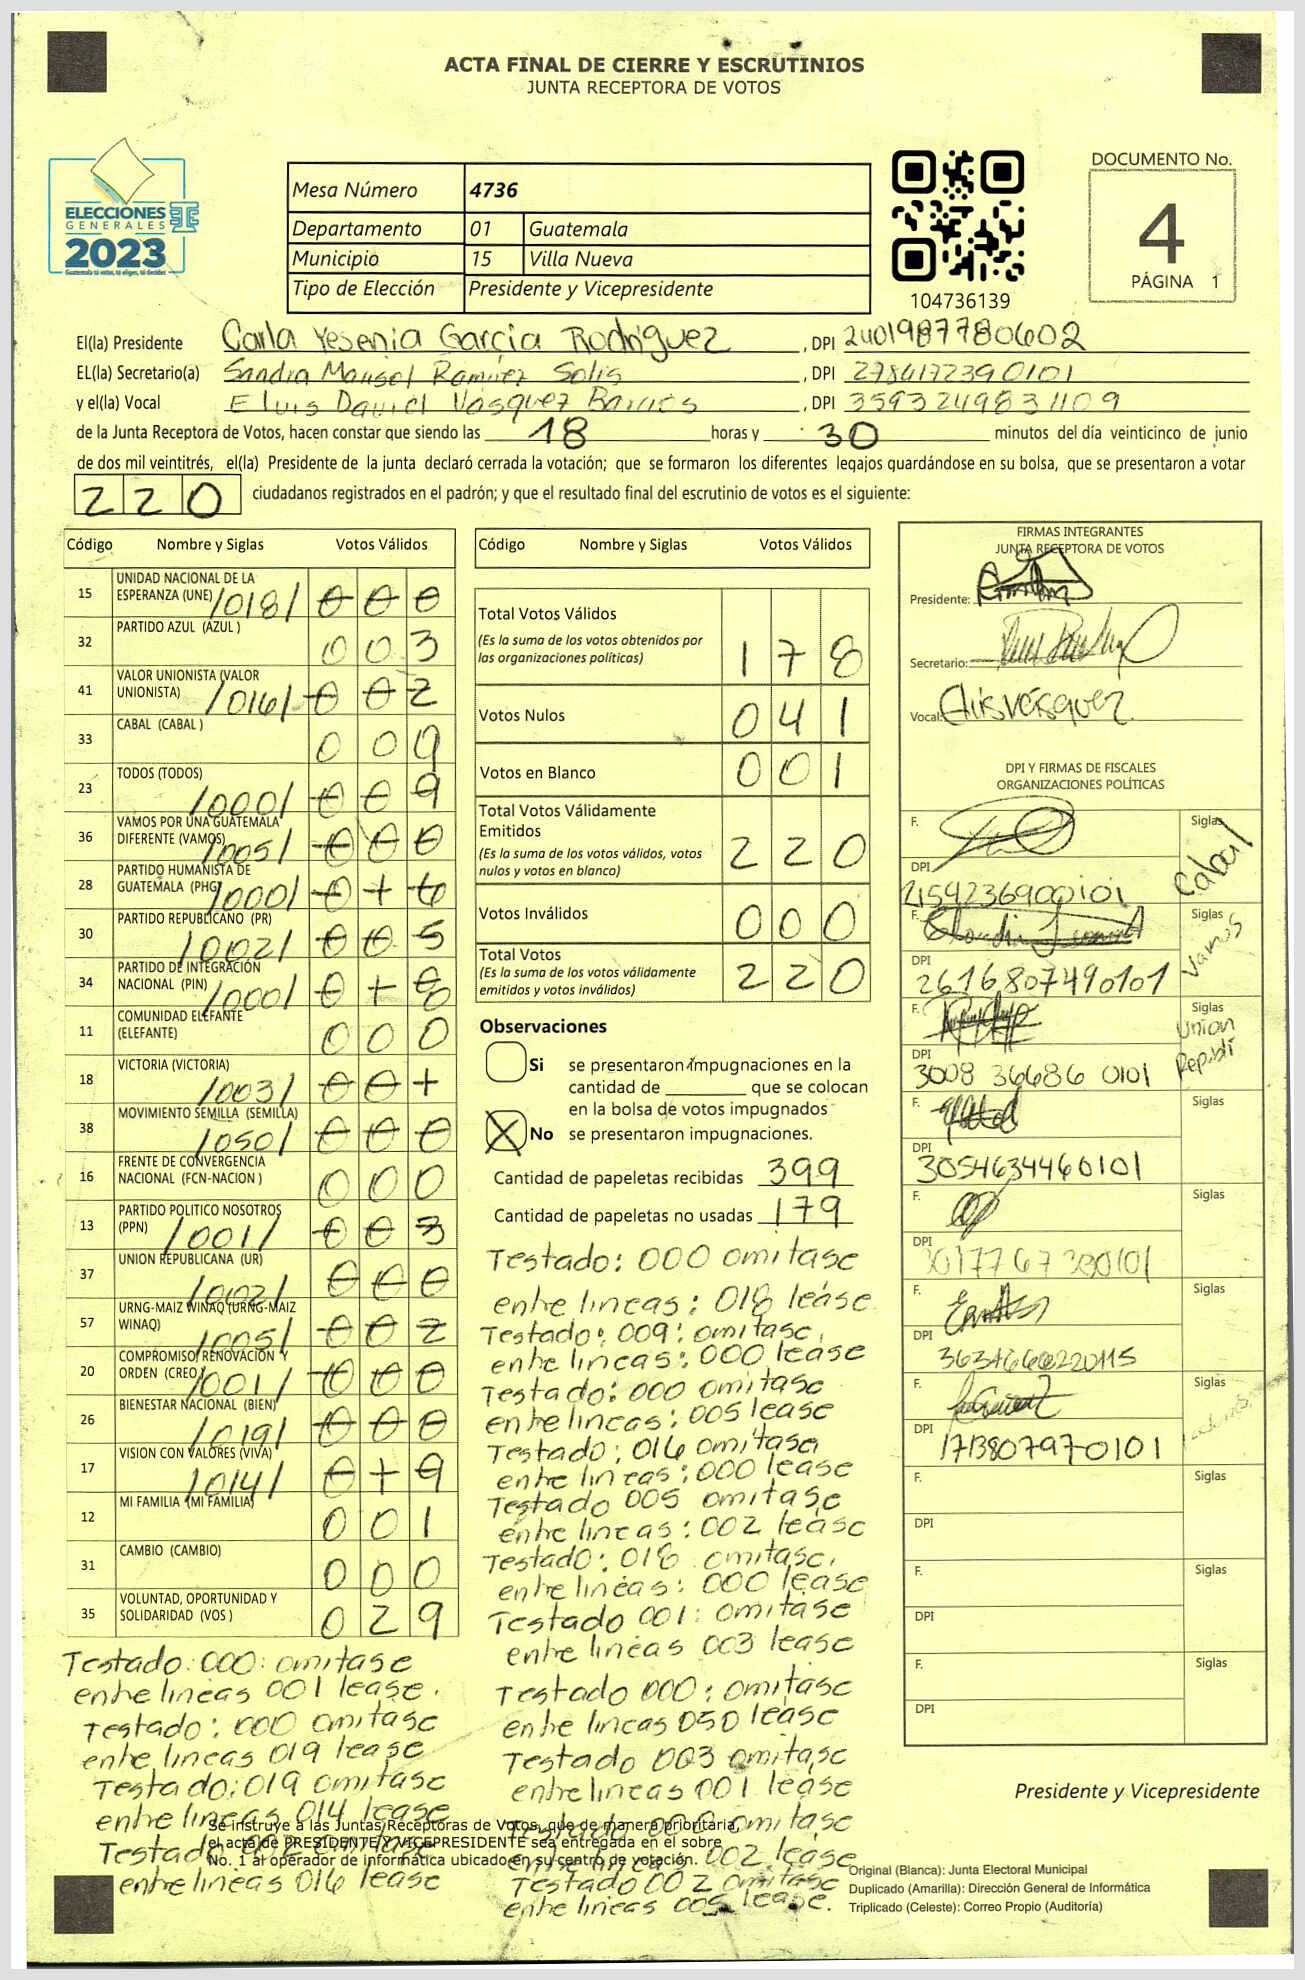 ACTA FINAL DE CIERRE Y ESCRUTINIOS
JUNTA RECEPTORA DE VOTOS
ELECCIONES
GENERALES
2023
Mesa Número 4736
Departamento 01 Guatemala
Municipio 15 Villa Nueva
Tipo de Elección Presidente y Vicepresidente
104736139
DOCUMENTO No.
4
PÁGINA 1
El(la) Presidente Carla Yesenia García Rodriguez, DPI 2401987780602
EL(la) Secretario(a) Sandra Marisol Ramirez Solis, DPI 2784172390101
y el(la) Vocal Eluis David Vasquez Barrios, DPI 3593249831109
de la Junta Receptora de Votos, hacen constar que siendo las 18 horas y 30 minutos del día veinticinco de junio
de dos mil veintitrés, el(la) Presidente de la junta declaró cerrada la votación; que se formaron los diferentes legajos guardándose en su bolsa, que se presentaron a votar
220 ciudadanos registrados en el padrón; y que el resultado final del escrutinio de votos es el siguiente:
Código Nombre y Siglas Votos Válidos
15 UNIDAD NACIONAL DE LA
ESPERANZA (UNE) /018/ 000
32 PARTIDO AZUL (AZUL ) 003
41 VALOR UNIONISTA (VALOR
UNIONISTA) /016/ 002
33 CABAL (CABAL ) 009
23 TODOS (TODOS) /000/ 009
36 VAMOS POR UNA GUATEMALA
DIFERENTE (VAMOS) /005/ 000
28 PARTIDO HUMANISTA DE
GUATEMALA (PHG) /000/ 016
30 PARTIDO REPUBLICANO (PR) /002/ 005
34 PARTIDO DE INTEGRACIÓN
NACIONAL (PIN) /000/ 018
11 COMUNIDAD ELEFANTE
(ELEFANTE) 000
18 VICTORIA (VICTORIA) /003/ 001
38 MOVIMIENTO SEMILLA (SEMILLA) /050/ 000
16 FRENTE DE CONVERGENCIA
NACIONAL (FCN-NACION ) 000
13 PARTIDO POLITICO NOSOTROS
(PPN) /001/ 003
37 UNION REPUBLICANA (UR) /002/ 000
57 URNG-MAIZ WINAQ (URNG-MAIZ
WINAQ) /005/ 002
20 COMPROMISO, RENOVACIÓN Y
ORDEN (CREO) /001/ 000
26 BIENESTAR NACIONAL (BIEN) /019/ 000
17 VISION CON VALORES (VIVA) /014/ 019
12 MI FAMILIA (MI FAMILIA) 001
31 CAMBIO (CAMBIO) 000
35 VOLUNTAD, OPORTUNIDAD Y
SOLIDARIDAD (VOS ) 029
Testado: 000: omitase
entre lineas 001 lease.
Testado: 000 omitase
entre lineas 019 lease
Testado: 019 omitase
entre lineas 014 lease
Testado 002 omitase
entre lineas 016 lease
Código Nombre y Siglas Votos Válidos
Total Votos Válidos 178
(Es la suma de los votos obtenidos por
las organizaciones políticas)
Votos Nulos 041
Votos en Blanco 001
Total Votos Válidamente
Emitidos 220
(Es la suma de los votos válidos, votos
nulos y votos en blanco)
Votos Inválidos 000
Total Votos 220
(Es la suma de los votos válidamente
emitidos y votos inválidos)
Observaciones
Si se presentaron impugnaciones en la
cantidad de ________ que se colocan
en la bolsa de votos impugnados
X No se presentaron impugnaciones.
Cantidad de papeletas recibidas 399
Cantidad de papeletas no usadas 179
Testado: 000 omitase
entre lineas: 018 lease
Testado: 009: omitase,
entre lineas: 000 lease
Testado: 000 omitase
entre lineas: 005 lease
Testado: 016 omitase
entre lineas: 000 lease
Testado 005 omitase
entre lineas: 002 lease
Testado: 018 omitase,
entre lineas: 000 lease
Testado 001: omitase
entre lineas 003 lease
Testado 000: omitase
entre lineas 050 lease
Testado 003 omitase
entre lineas 001 lease
Testado 000 omitase
entre lineas 002 lease
Testado 002 omitase
entre lineas 005 lease.
Se instruye a las Juntas Receptoras de Votos, que de manera prioritaria,
el acta de PRESIDENTE Y VICEPRESIDENTE sea entregada en el sobre
No. 1 al operador de informática ubicado en su centro de votación.
FIRMAS INTEGRANTES
JUNTA RECEPTORA DE VOTOS
Presidente:
Secretario:
Vocal: Eluisvásquez
DPI Y FIRMAS DE FISCALES
ORGANIZACIONES POLÍTICAS
F. Siglas Cabal
DPI 2154236900101
F. Siglas Vamos
DPI 2616807490101
F. Siglas Union
DPI 3008 36686 0101
F. Siglas
DPI 3054634460101
F. Siglas
DPI
F. Siglas
DPI
F. Siglas
DPI 1713807970101
F. Siglas
DPI
F. Siglas
DPI
F. Siglas
DPI
Presidente y Vicepresidente
Original (Blanca): Junta Electoral Municipal
Duplicado (Amarilla): Dirección General de Informática
Triplicado (Celeste): Correo Propio (Auditoría)